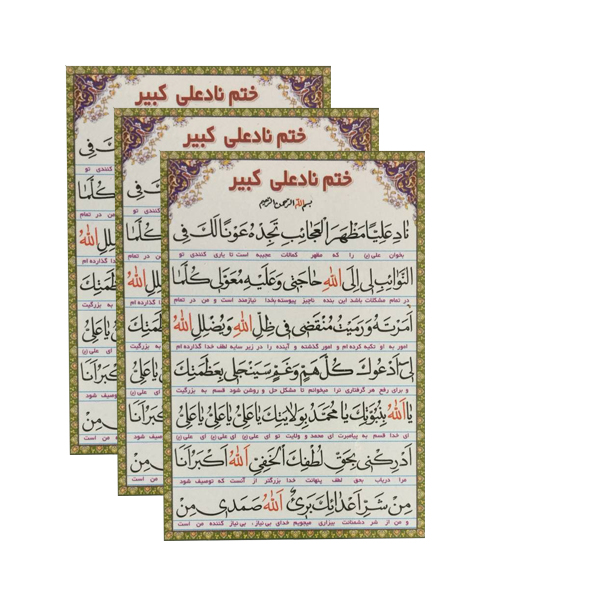 ختم نادعلی کبیر
بسم الله الرحمن الرحیم
نادِ عَلِيًّا مَظْهَرَ الْعَجَائِبِ تَجِدْهُ عَوْنًا لَكَ فِی
بخوان علی (ع) را که مظهر کمالات عجیبه است تا یاری کنندی تو
النَّوَائِبِ لِی اِلَی اللهِ حَاجَتِی وَعَلَیْهِ مُعَوَّلِی کُلَّمَا
در تمام مشکلات باشد این بنده ناچیز پیوسته بخدا نیازمند است و من در تمام
اَمَرْتَهُ وَرَمَیْتُ مُنْقَضِی فِی ظِلِّ اللهِ وَیُضْلِلِ اللهُ
امور به او تکیه کرده ام و امور گذشته و آینده را در زیر سایه لطف خدا گذارده ام
لِی اَدْعُوكَ کُلَّ هَمٍّ وَغَمٍّ سَیَنْجَلِی بِعَظَمَتِكَ
و برای رفع هر گرفتاری ترا میخوانم تا مشکل حل و روشن شود قسم به بزرگیت
یَا اَللهُ بِنُبُوَّتِكَ یَا مُحَمَّدُ بِوِلَایَتِكَ یَا عَلِیُّ یَا عَلِیُّ یَا عَلِیُّ
ای خدا قسم به پیامبرت ای محمد و ولایت تو ای علی (ع) ای علی (ع) ای علی (ع)
اَدْرِکْنِی بِحَقِّ لُطْفِكَ الْخَفِیِّ اَللهُ اَکْبَرُ اَنَا
مرا دریاب بحق لطف پنهانت خدا بزرگتر از آنست که توصیف شود
مِنْ شَرِّ اَعْدَائِكَ بَرِیءٌ اَللهُ صَمَدِی مِنْ
و من از شر دشمنانت بیزاری میجویم خدای بی نیاز، بی نیاز کننده من است